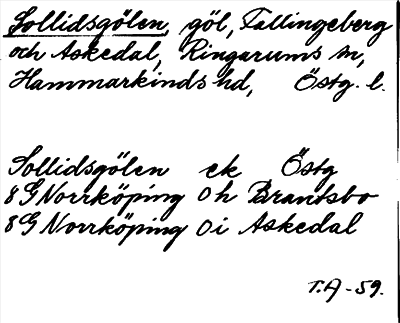 Sollidsgölen, göl, Fallingeberg
och Askedal, Ringarums sn,
Hammarkinds hd, Östg. l.
Sollidsgölen ek Östg
8G Norrköping 0h Brantsbo
8G Norrköping 0i Askedal
T.A -59.